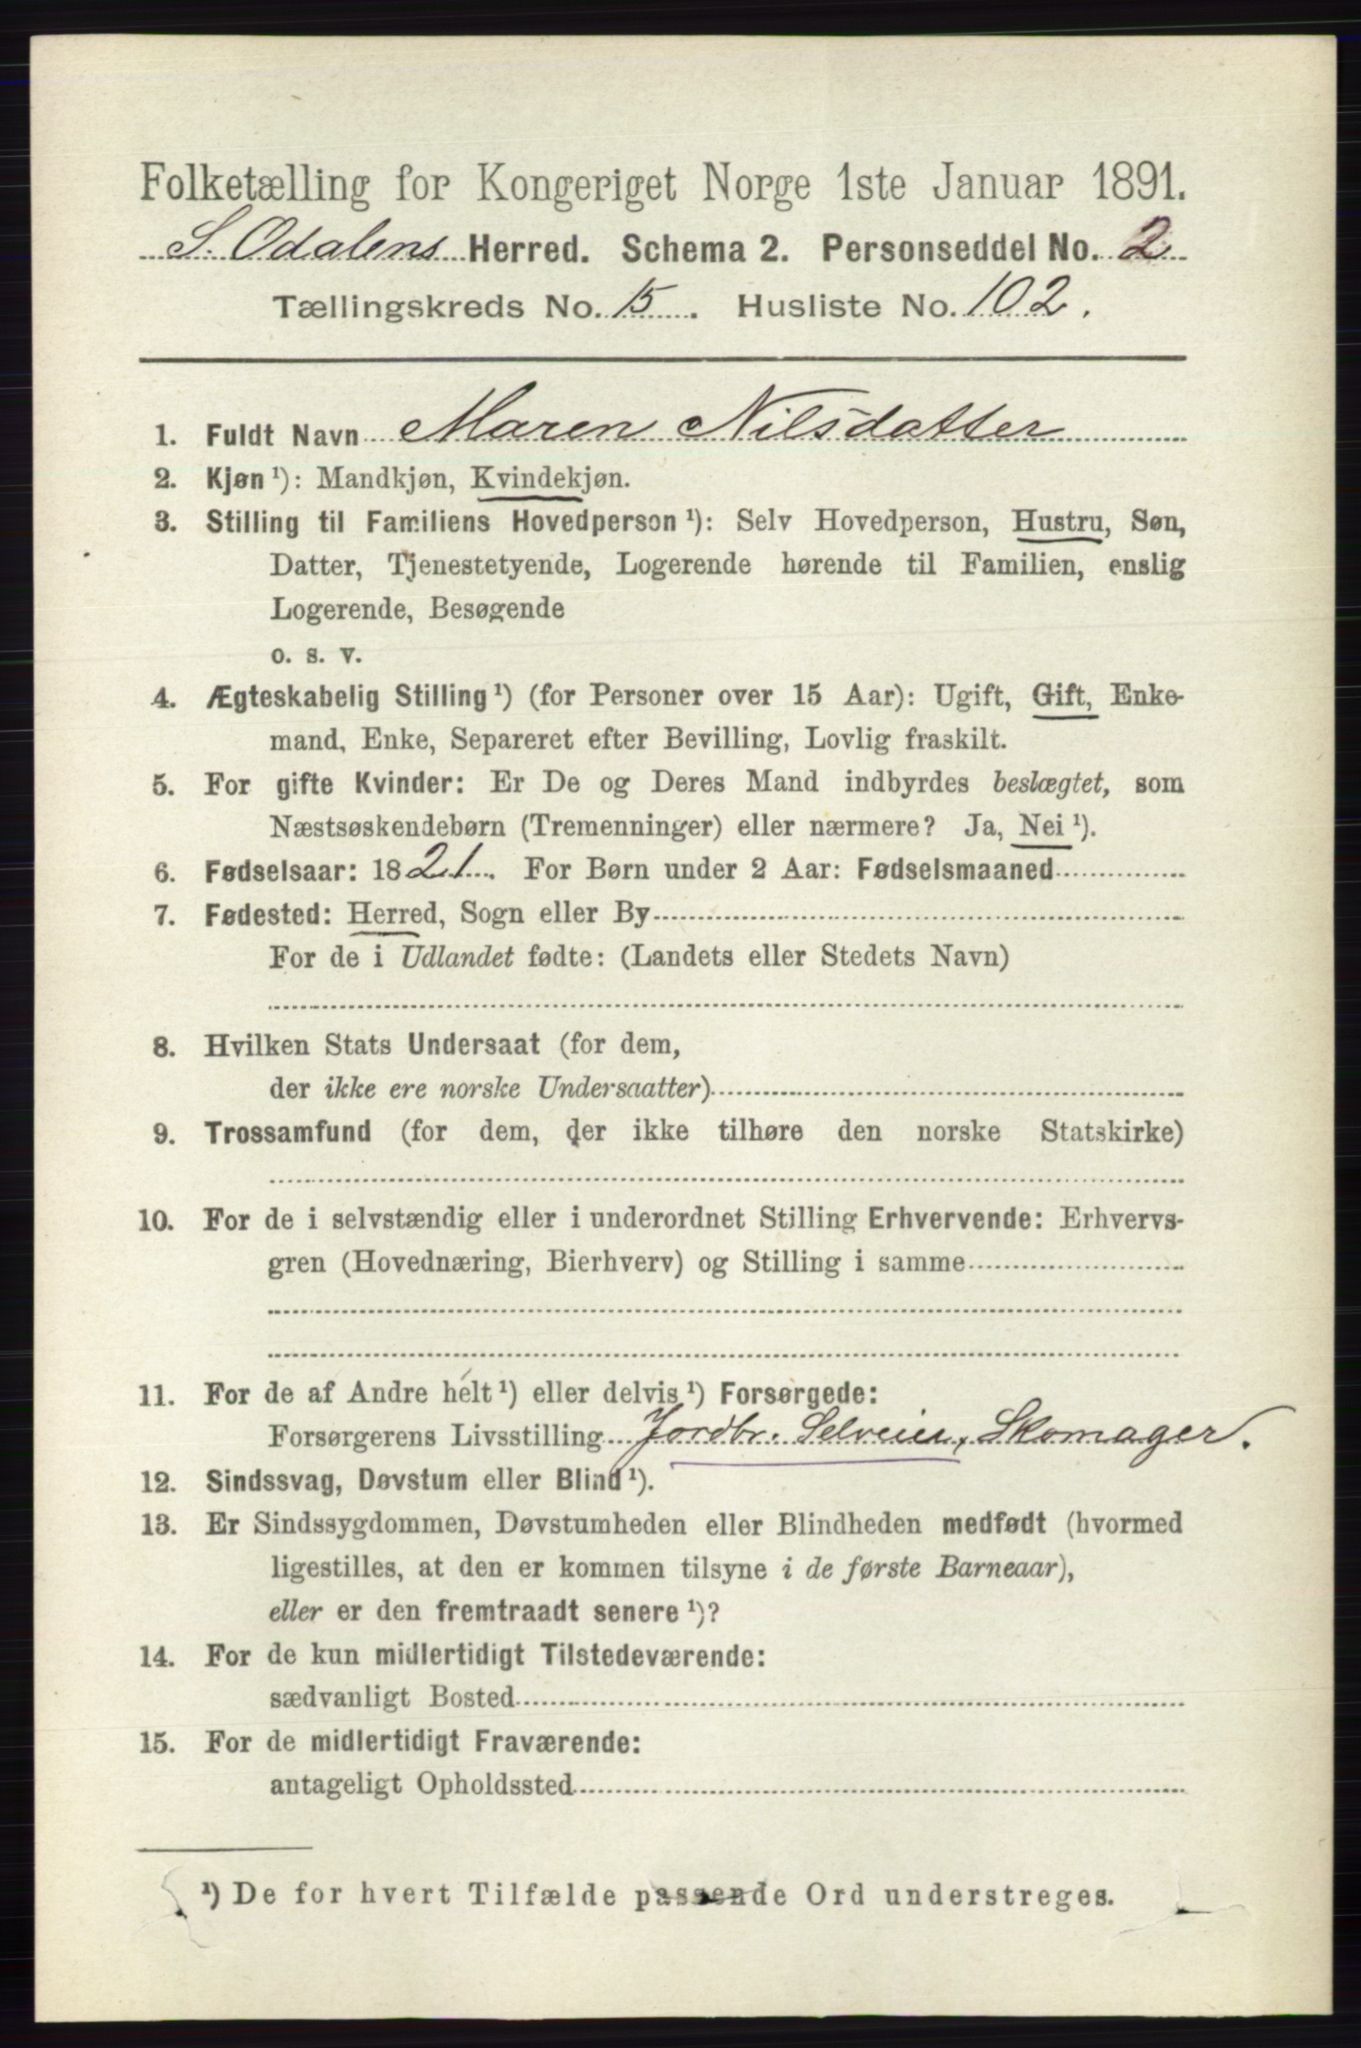 Folketælling for Kongeriget Norge 1ste Januar 1891.
S. Odalens Herred. Schema 2. Personseddel No. 2
Tællingskreds No. 15. Husliste No. 102.
1. Fuldt Navn Maren Nilsdatter
2. Kjøn ¹): Mandkjøn, Kvindekjøn.
3. Stilling til Familiens Hovedperson ¹): Selv Hovedperson, Hustru, Søn,
Datter, Tjenestetyende, Logerende hørende til Familien, enslig
Logerende, Besøgende
o. s. v.
4. Ægteskabelig Stilling ¹) (for Personer over 15 Aar): Ugift, Gift, Enke-
mand, Enke, Separeret efter Bevilling, Lovlig fraskilt.
5. For gifte Kvinder: Er De og Deres Mand indbyrdes beslægtet, som
Næstsøskendebørn (Tremenninger) eller nærmere? Ja, Nei ¹).
6. Fødselsaar: 1821. For Børn under 2 Aar: Fødselsmaaned
7. Fødested: Herred, Sogn eller By
For de i Udlandet fødte: (Landets eller Stedets Navn)
8. Hvilken Stats Undersaat (for dem,
der ikke ere norske Undersaatter)
9. Trossamfund (for dem, der ikke tilhøre den norske Statskirke)
10. For de i selvstændig eller i underordnet Stilling Erhvervende: Erhvervs-
gren (Hovednæring, Bierhverv) og Stilling i samme
11. For de af Andre helt ¹) eller delvis ¹) Forsørgede:
Forsørgerens Livsstilling Jordbr. Selveier, Skomager.
12. Sindssvag, Døvstum eller Blind ¹).
13. Er Sindssygdommen, Døvstumheden eller Blindheden medfødt (hvormed
ligestilles, at den er kommen tilsyne i de første Barneaar),
eller er den fremtraadt senere ¹)?
14. For de kun midlertidigt Tilstedeværende:
sædvanligt Bosted
15. For de midlertidigt Fraværende:
antageligt Opholdssted
¹) De for hvert Tilfælde passende Ord understreges.